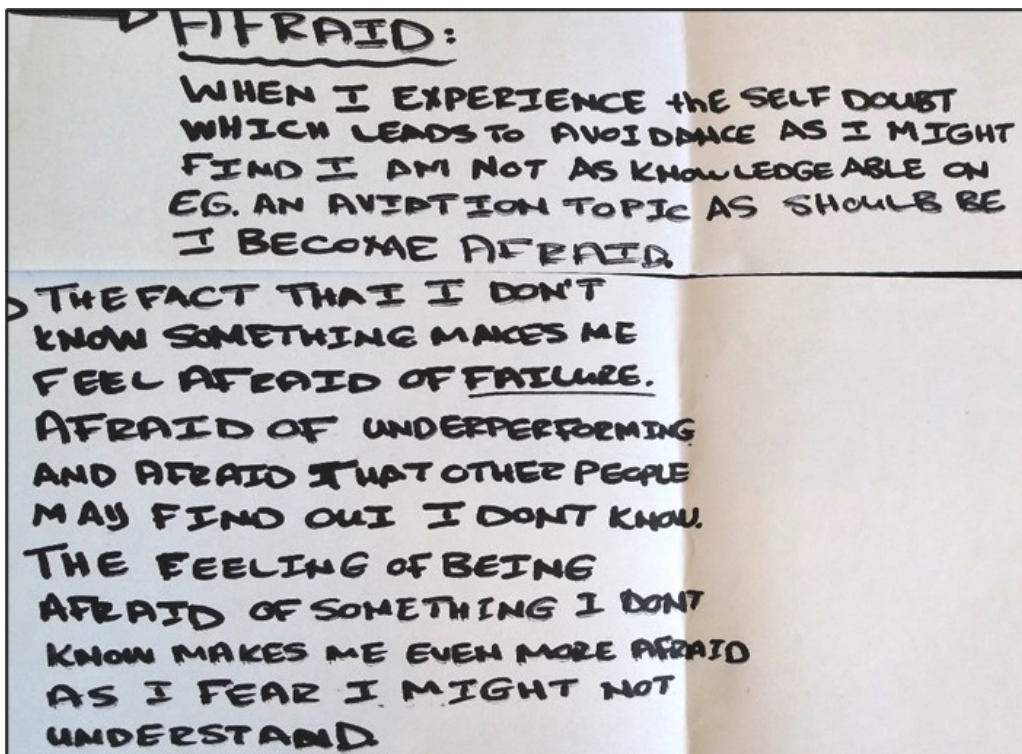 AFRAID:
WHEN I EXPERIENCE the SELF DOUBT
WHICH LEADS TO AVOIDANCE AS I MIGHT
FIND I AM NOT AS KNOWLEDGEABLE ON
EG. AN AVIATION TOPIC AS SHOULB BE
I BECOME AFRAID.
THE FACT THAI I DON'T
KNOW SOMETHING MAKES ME
FEEL AFRAID OF FAILURE.
AFRAID OF UNDERPERFORMING
AND AFRAID THAT OTHER PEOPLE
MAY FIND OUI I DONT KNOW.
THE FEELING OF BEING
AFRAID OF SOMETHING I DONT
KNOW MAKES ME EVEN MORE AFRAID
AS I FEAR I MIGHT NOT
UNDERSTAND.